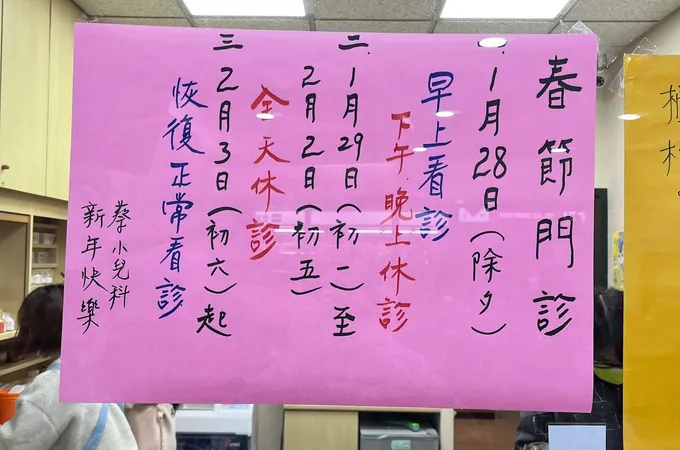 春節門診
一、1月28日(除夕)
早上看診
下午晚上休診
二、1月29日(初一)至
2月2日(初五)
全天休診
三、2月3日(初六)起
恢復正常看診
蔡小兒科
新年快樂